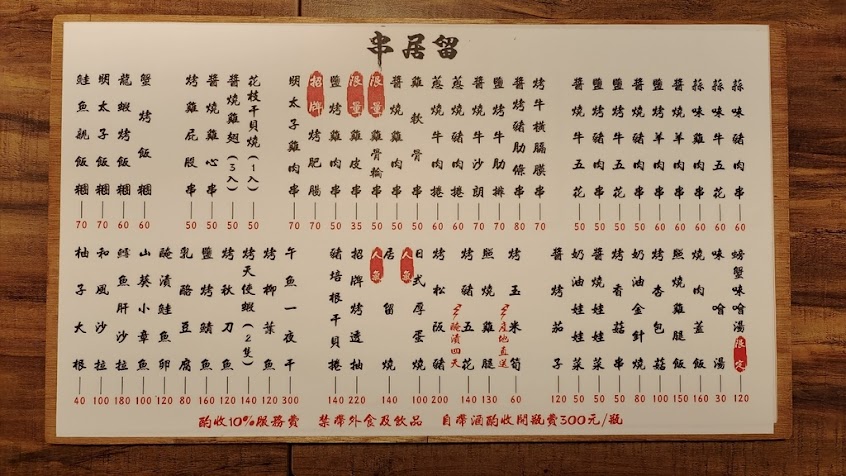 串居留
蒜味豬肉串 60
蒜味牛五花 60
蒜味雞肉串 60
醬燒羊肉串 60
鹽烤羊肉串 60
醬烤豬肉串 50
鹽烤牛五花 50
鹽烤豬肉串 50
醬燒牛五花 50
烤牛橫膈膜串 70
醬烤豬肋條串 80
鹽烤牛肋排 70
醬燒牛沙朗 70
蔥燒豬肉捲 60
蔥燒牛肉捲 60
雞軟骨串 50
醬燒雞肉串 50
限量 雞骨輪串 50
限量 雞皮串 35
鹽烤雞肉串 50
招牌 烤肥腸 70
明太子雞肉串 70
花枝干貝燒(1入) 50
醬燒雞翅(3入) 50
醬燒雞心串 50
烤雞屁股串 50
蟹烤飯糰 60
龍蝦烤飯糰 60
明太子烤飯糰 70
鮭魚親飯糰 70
螃蟹味噌湯 限定 120
味噌湯 30
燒肉蓋飯 160
照燒雞腿飯 150
烤杏包菇 100
奶油金針菇 80
烤香菇串 50
醬燒娃娃菜 50
奶油娃娃菜 50
醬烤茄子 120
烤玉米筍 60
產地直送
照燒雞腿 130
烤豬五花 140
醃漬四天
烤松阪豬 200
人氣 日式厚蛋燒 100
人氣 居留燒 140
招牌烤透抽 220
豬培根干貝捲 140
午魚一夜干 300
烤柳葉魚 120
烤天使蝦(2隻) 140
烤秋刀魚 120
鹽烤鯖魚 160
乳酪豆腐 80
醃漬鮭魚卵 120
山葵小章魚 100
鱈魚肝沙拉 180
和風沙拉 100
柚子大根 40
酌收10%服務費 禁帶外食及飲品 自帶酒酌收開瓶費300元/瓶